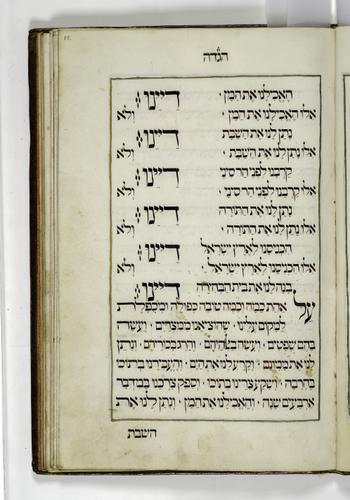 הגדה
האכילנו את המן · דיינו
אלו האכילנו את המן · ולא
נתן לנו את השבת דיינו
אלו נתן לנו את השבת · ולא
קרבנו לפני הר סיני דיינו
אלו קרבנו לפני הר סיני · ולא
נתן לנו את התורה דיינו
אלו נתן לנו את התורה · ולא
הכניסנו לארץ ישראל דיינו
אלו הכניסנו לארץ ישראל · ולא
בנה לנו את בית הבחירה דיינו
על אחת כמה וכמה טובה כפולה ומכפלת
למקום עלינו · שהוציאנו ממצרים · ועשה
בהם שפטים · ועשה באלהיהם · והרג בכוריהם · ונתן
לנו את ממונם · וקרע לנו את הים · והעבירנו בתוכו
בחרבה · ושקע צרינו בתוכו · וספק צרכנו במדבר
ארבעים שנה · והאכילנו את המן · ונתן לנו את
השבת